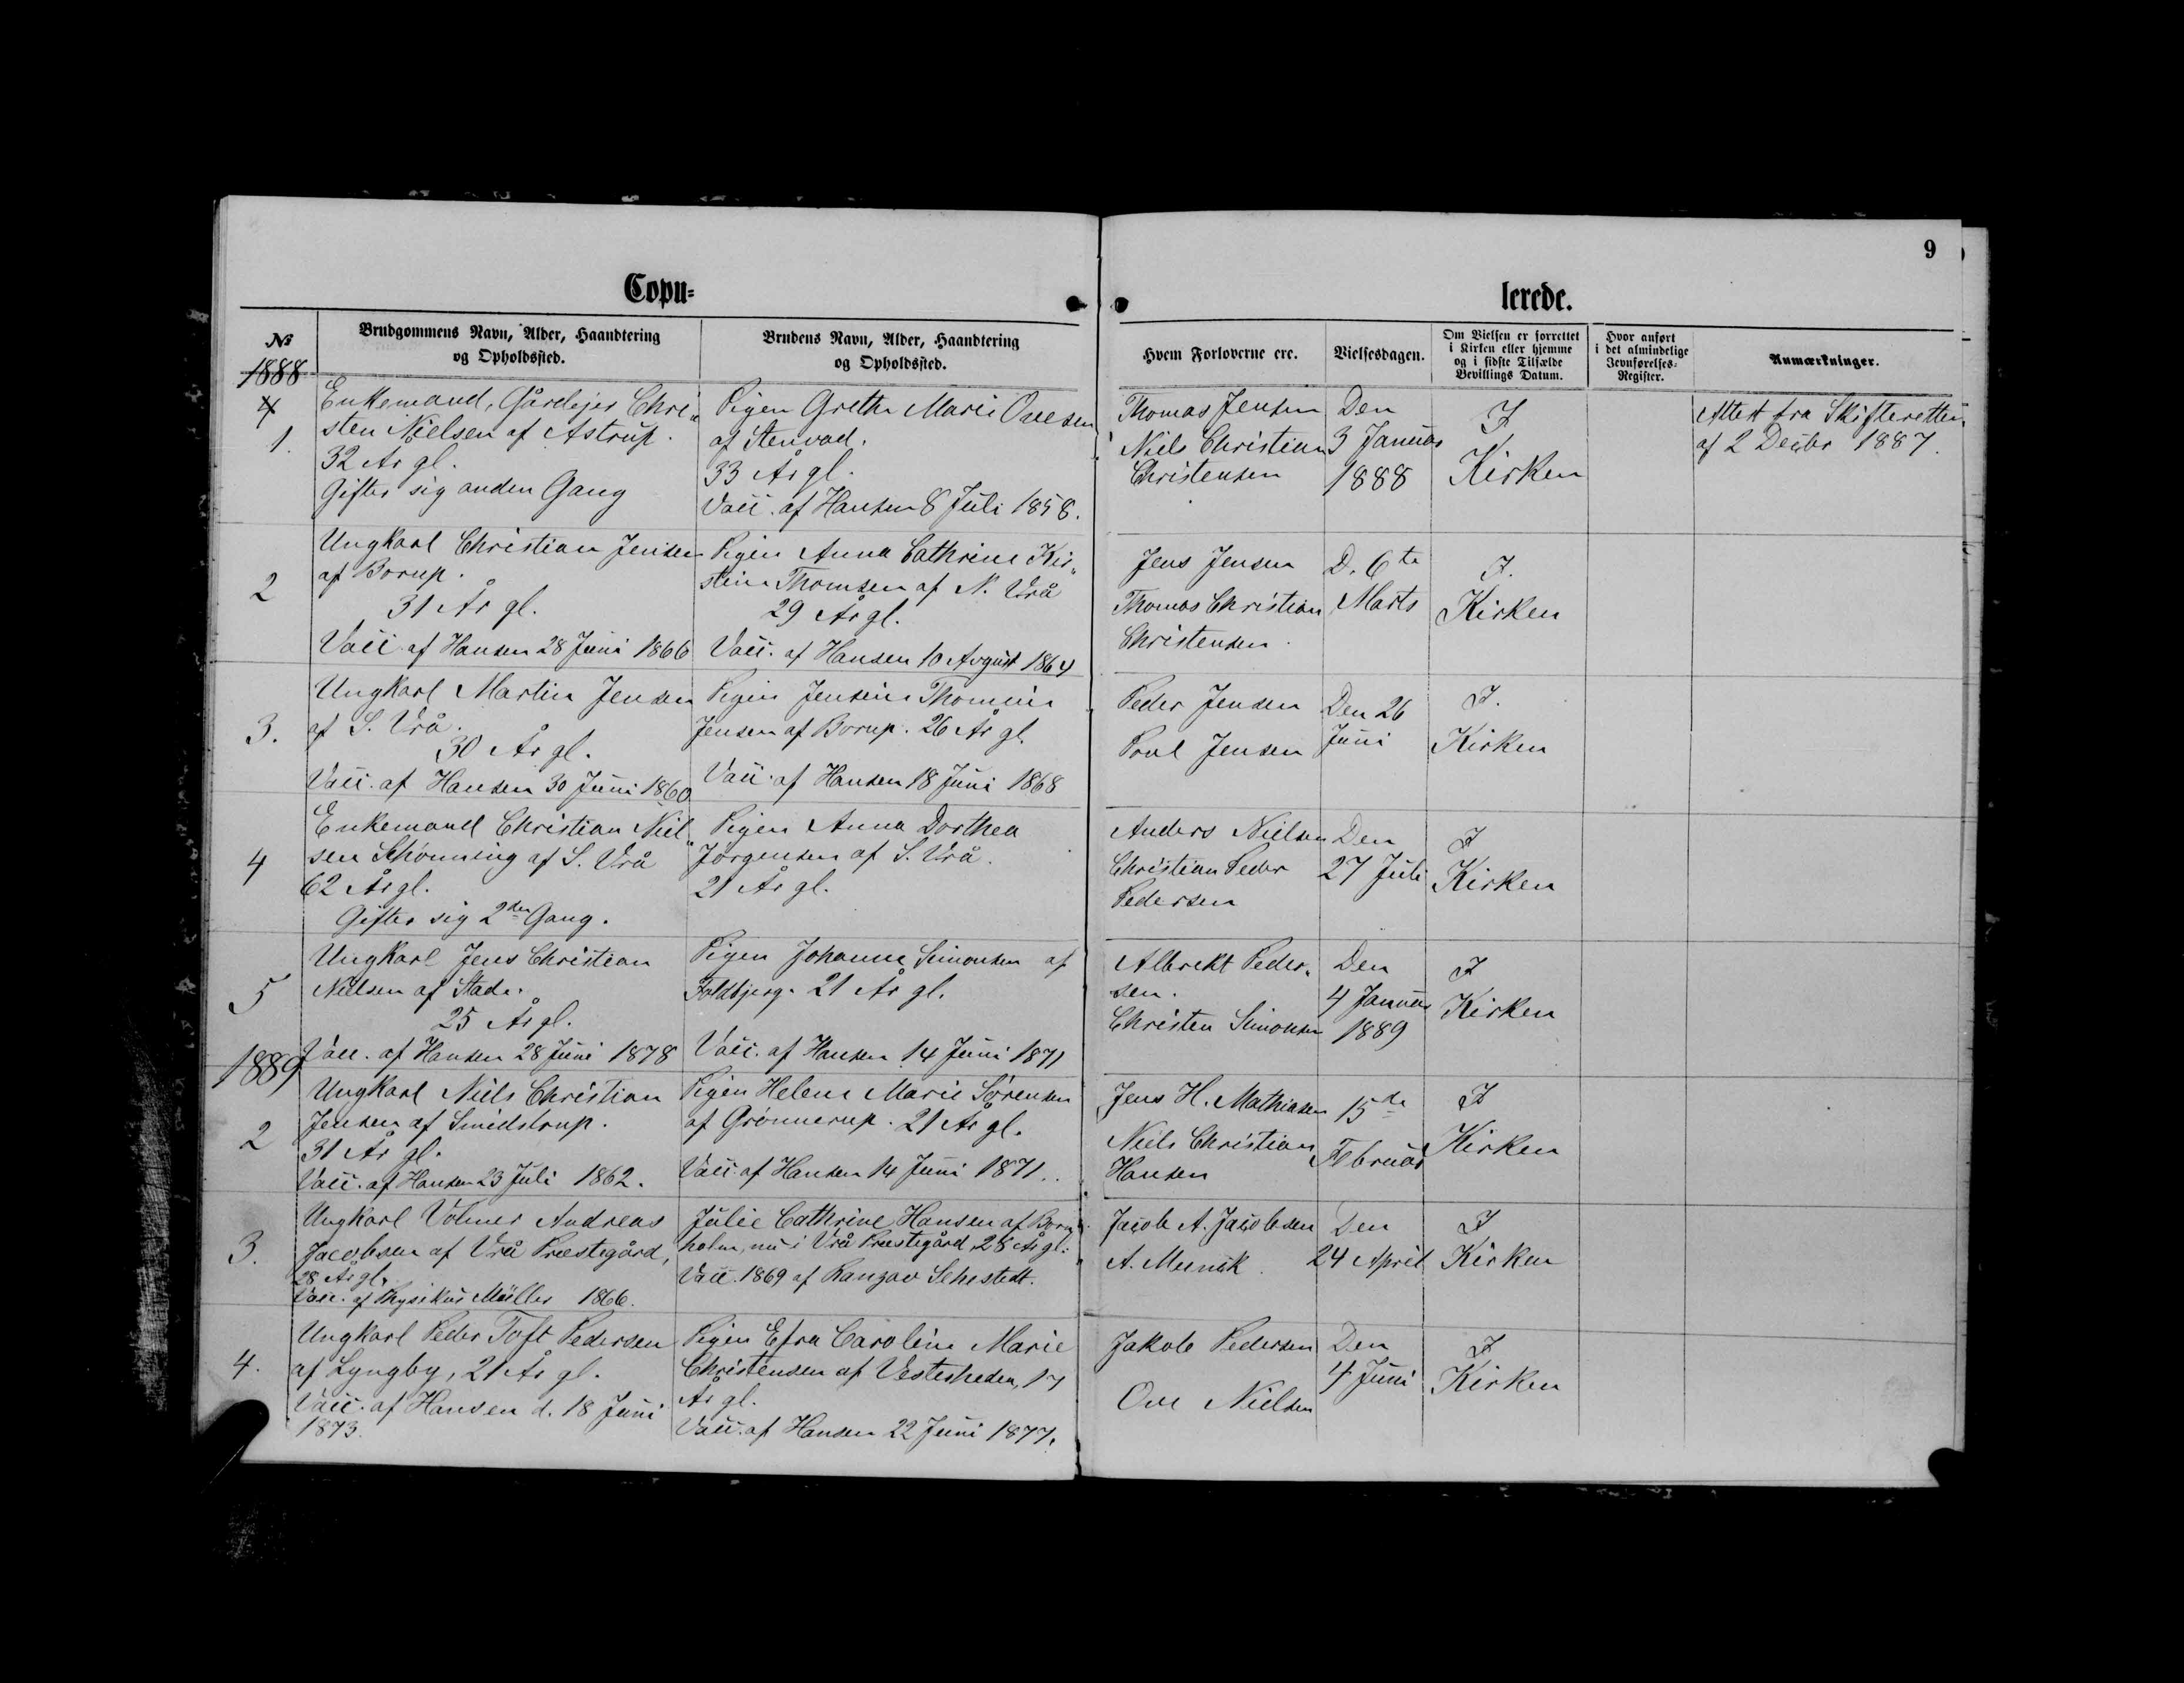 9
Copu=
lerede.
№
Brudgommens Navn, Alder, Haandtering
og Opholdssted.
Brudens Navn, Alder, Haandtering
og Opholdssted.
Hvem Forloverne ere.
Vielsesdagen.
Om Vielsen er forrettet
i Kirken eller hjemme
og i sidste Tilfælde
Bevillings Datum.
Hvor anført
i det almindelige
Jevnførelses-
Register.
Anmærkninger.
1888
4
1.
Enkemand, Gårdejer Chri„
sten Nielsen af Astrup.
32 År gl.
Gifter sig anden Gang
Pigen Grethe Marie Ovesen
af Stenvad.
33 År gl.
Vacc. af Hansen 8 Juli 1858.
Thomas Jensen
Niels Christian
Christensen
Den
3 Januar
1888
I
Kirken
Attest fra Skifteretten
af 2 Decbr 1887.
2
Ungkarl Christian Jensen
af Borup.
31 År gl.
Vacc. af Hansen 28 Juni 1866
Pigen Anna Cathrine Kir„
stine Thomsen af N. Vrå
29 År gl.
Vacc. af Hansen 10 August 1864
Jens Jensen
Thomas Christian
Christensen.
D. 6te
Marts
I.
Kirken
3.
Ungkarl Martin Jensen
af S. Vrå.
30 År gl.
Vacc. af Hansen 30 Juni 1860
Pigen Jensine Thomine
Jensen af Borup. 26 År gl.
Vacc. af Hansen 18 Juni 1868
Peder Jensen
Poul Jensen
Den 26
Juni
I.
Kirken
4
Enkemand Christian Niel„
sen Schønning af S. Vrå
62 År gl.
Gifter sig 2den Gang.
Pigen Anna Dorthea
Jørgensen af S. Vrå.
21 År gl.
Anders Nielsen
Christian Peder
Pedersen
Den
27 Juli
I
Kirken
5
Ungkarl Jens Christian
Nielsen af Stade.
25 År gl.
Vacc. af Hansen 28 Juni 1878
Pigen Johanne Simonsen af
Foldbjerg. 21 År gl.
Vacc. af Hansen 14 Juni 1871
Albrekt Peder„
sen.
Christen Simonsen
Den
4 Januar
1889
I
Kirken
1889
2
Ungkarl Niels Christian
Jensen af Smidstrup.
31 År gl.
Vacc. af Hansen 23 Juli 1862.
Pigen Helene Marie Sørensen
af Grønnerup. 21 År gl.
Vacc. af Hansen 14 Juni 1871.
Jens H. Mathiasen
Niels Christian
Hansen
15de
Februar
I
Kirken
3.
Ungkarl Volmer Andreas
Jacobsen af Vrå Præstegård,
28 År gl.
Vacc. af Physikus Müller 1866.
Julie Cathrine Hansen af Born„
holm, nu i Vrå Præstegård, 28 År gl.
Vacc. 1869 af Ranzav Sehestedt.
Jacob A. Jacobsen
A. Munck.
Den
24 April
I
Kirken
4.
Ungkarl Peder Toft Pedersen
af Lyngby, 21 År gl.
Vacc. af Hansen d. 18 Juni
1873.
Pigen Efra Caroline Marie
Christensen af Vesterheden, 17
År gl.
Vacc. af Hansen 22 Juni 1877.
Jakob Pedersen
Ove Nielsen
Den
4 Juni
I
Kirken